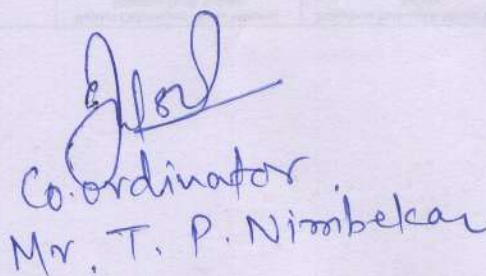 Co.ordinator
Mr. T. P. Nimbekar